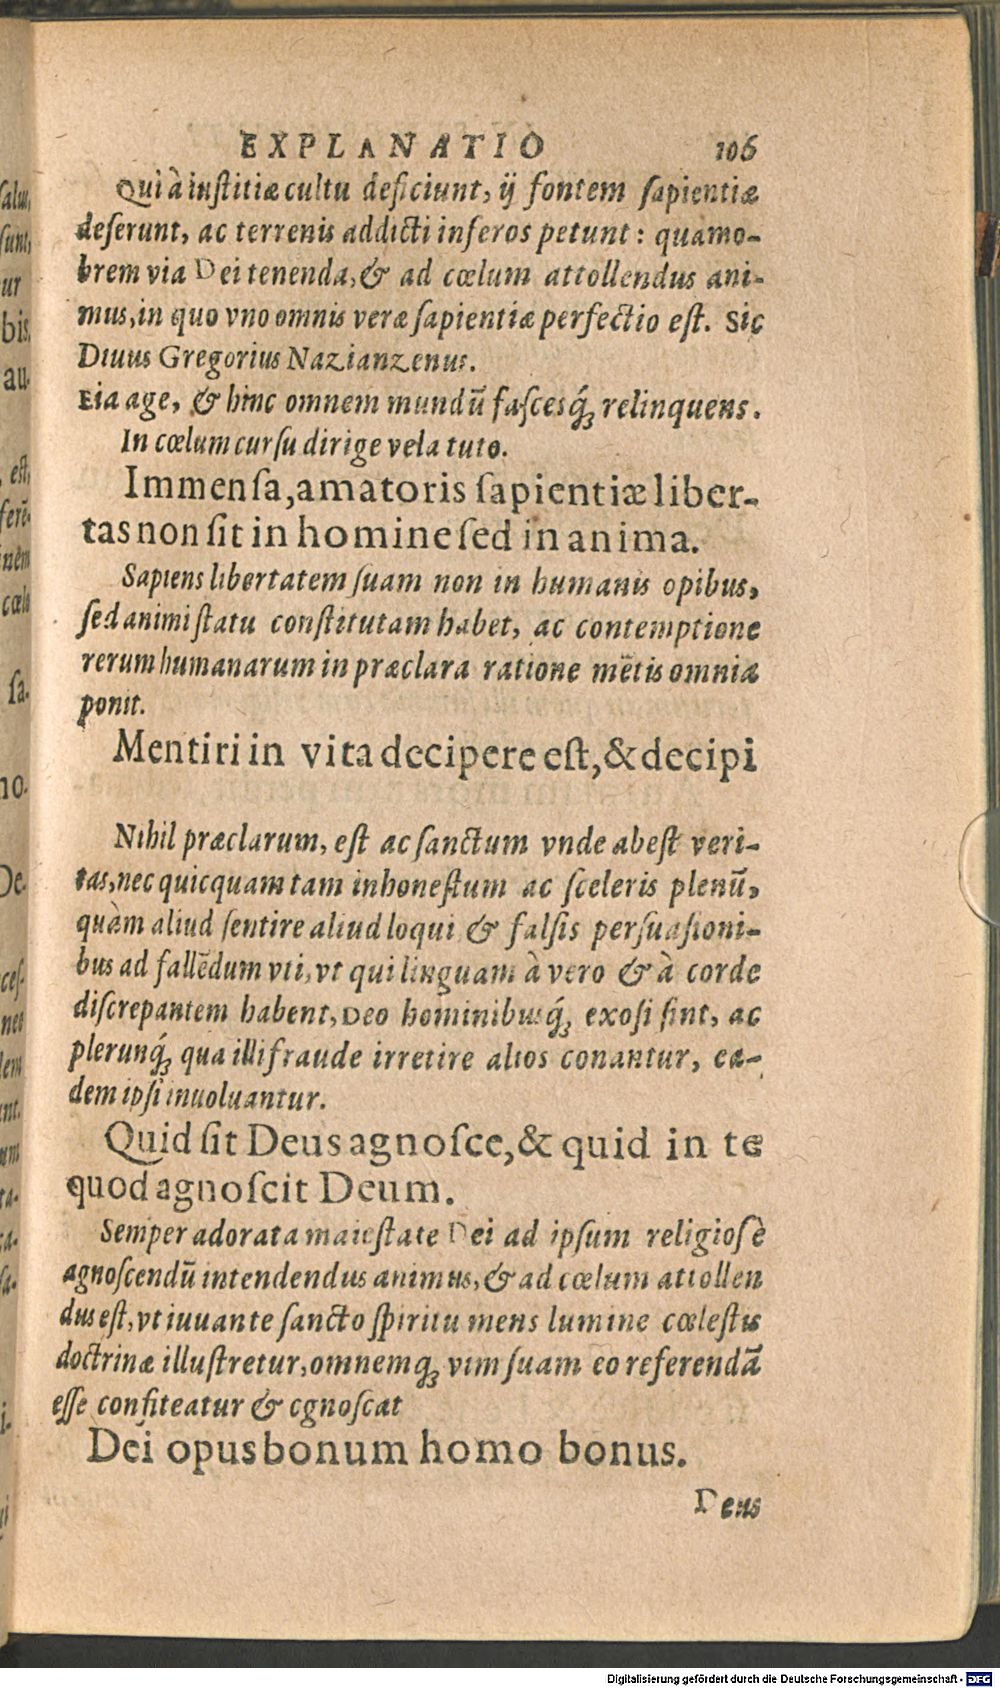 EXPLANATIO 106
Qui à iustitiæ cultu deficiunt, ij fontem sapientiæ
deserunt, ac terrenis addicti inferos petunt: quamo-
brem via Dei tenenda, & ad cœlum attollendus ani-
mus, in quo vno omnis veræ sapientiæ perfectio est. Sic
Diuus Gregorius Nazianzenus.
Eia age, & hinc omnem mundū fascesq́; relinquens.
In cœlum cursu dirige vela tuto.
Immensa, amatoris sapientiæ liber-
tas non sit in homine sed in anima.
Sapiens libertatem suam non in humanis opibus,
sed animi statu constitutam habet, ac contemptione
rerum humanarum in præclara ratione mētis omniæ
ponit.
Mentiri in vita decipere est, & decipi
Nihil præclarum, est ac sanctum vnde abest veri-
tas, nec quicquam tam inhonestum ac sceleris plenū,
quàm aliud sentire aliud loqui & falsis persuasioni-
bus ad fallēdum vti, vt qui linguam à vero & à corde
discrepantem habent, Deo hominibusq́; exosi sint, ac
plerunq́; qua illi fraude irretire alios conantur, ea-
dem ipsi inuoluantur.
Quid sit Deus agnosce, & quid in te
quod agnoscit Deum.
Semper adorata maiestate Dei ad ipsum religiosè
agnoscendū intendendus animus, & ad cœlum attollen
dus est, vt iuuante sancto spiritu mens lumine cœlestis
doctrinæ illustretur, omnemq; vim suam eo referendā
esse confiteatur & cgnoscat
Dei opus bonum homo bonus.
Deus
Digitalisierung gefördert durch die Deutsche Forschungsgemeinschaft - DFG